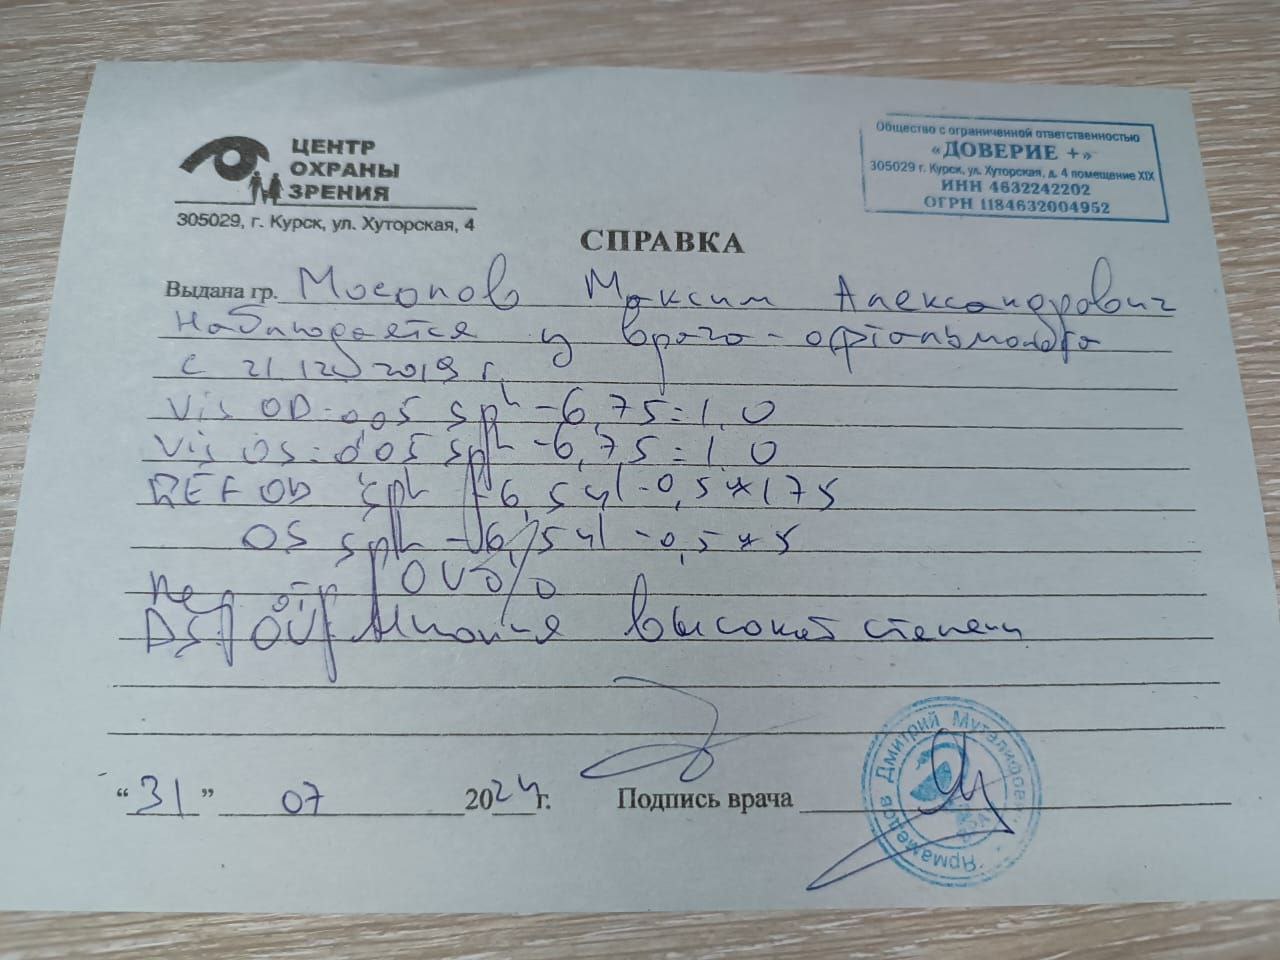 ЦЕНТР
ОХРАНЫ
ЗРЕНИЯ
305029, г. Курск, ул. Хуторская, 4
Общество с ограниченной ответственностью
«ДОВЕРИЕ +»
305029 г. Курск, ул. Хуторская, д. 4 помещение XIX
ИНН 4632242202
ОГРН 1184632004952
СПРАВКА
Выдана гр. Максим Александрович
наблюдается у врача-офтальмолога
с 21.12.2019 г.
Vis OD=0,05 sph -6,75=1,0
Vis OS=0,05 sph -6,75=1,0
REF OD sph -6,5 cyl -0,5 x 175
OS sph -6,75 cyl -0,5 x 5
OU
DS: OU Миопия высокой степени
“31” 07 2024г. Подпись врача
Ярмамедов Дмитрий Муталифович